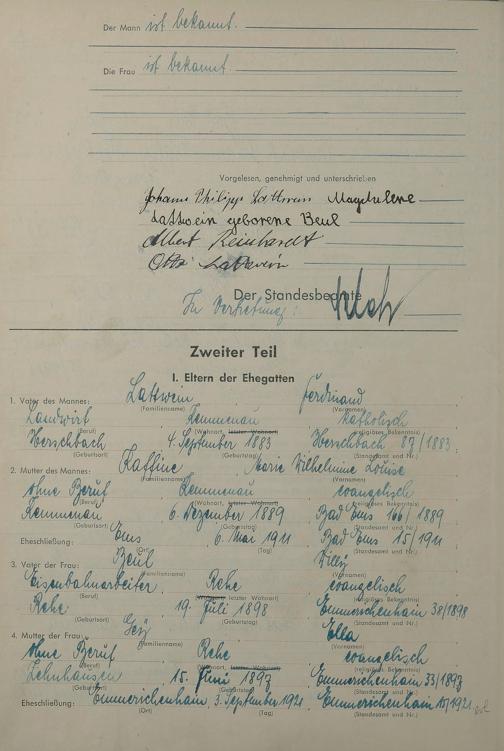 Der Mann ist bekannt.
Die Frau ist bekannt.
Vorgelesen, genehmigt und unterschrieben
Johann Philipp Lattwein Magdalene
Lattwein geborene Beul
Albert Reinhardt
Otto Lattwein
Der Standesbeamte
In Vertretung:
Zweiter Teil
I. Eltern der Ehegatten
1. Vater des Mannes: Lattwein Ferdinand
(Familienname) (Vornamen)
Landwirt Kemmenau katholisch
(Beruf) (Wohnort, letzter Wohnort) (religiöses Bekenntnis)
Herschbach 4. September 1883 Herschbach 87/1883
(Geburtsort) (Geburtstag) (Standesamt und Nr.)
2. Mutter des Mannes: Kaffine Marie Wilhelmine Louise
(Familienname) (Vornamen)
ohne Beruf Kemmenau evangelisch
(Beruf) (Wohnort, letzter Wohnort) (religiöses Bekenntnis)
Kemmenau 6. Dezember 1889 Bad Ems 166/1889
(Geburtsort) (Geburtstag) (Standesamt und Nr.)
Eheschließung: Ems 6. Mai 1911 Bad Ems 15/1911
(Ort) (Tag) (Standesamt und Nr.)
3. Vater der Frau: Beul Willy
(Familienname) (Vornamen)
Eisenbahnarbeiter Rehe evangelisch
(Beruf) (Wohnort, letzter Wohnort) (religiöses Bekenntnis)
Rehe 19. Juli 1898 Emmerichenhain 38/1898
(Geburtsort) (Geburtstag) (Standesamt und Nr.)
4. Mutter der Frau: Ella
(Familienname) (Vornamen)
ohne Beruf Rehe evangelisch
(Beruf) (Wohnort, letzter Wohnort) (religiöses Bekenntnis)
Zehnhausen 15. Juni 1897 Emmerichenhain 33/1897
(Geburtsort) (Geburtstag) (Standesamt und Nr.)
Eheschließung: Emmerichenhain 3. September 1921 Emmerichenhain 15/1921
(Ort) (Tag) (Standesamt und Nr.)